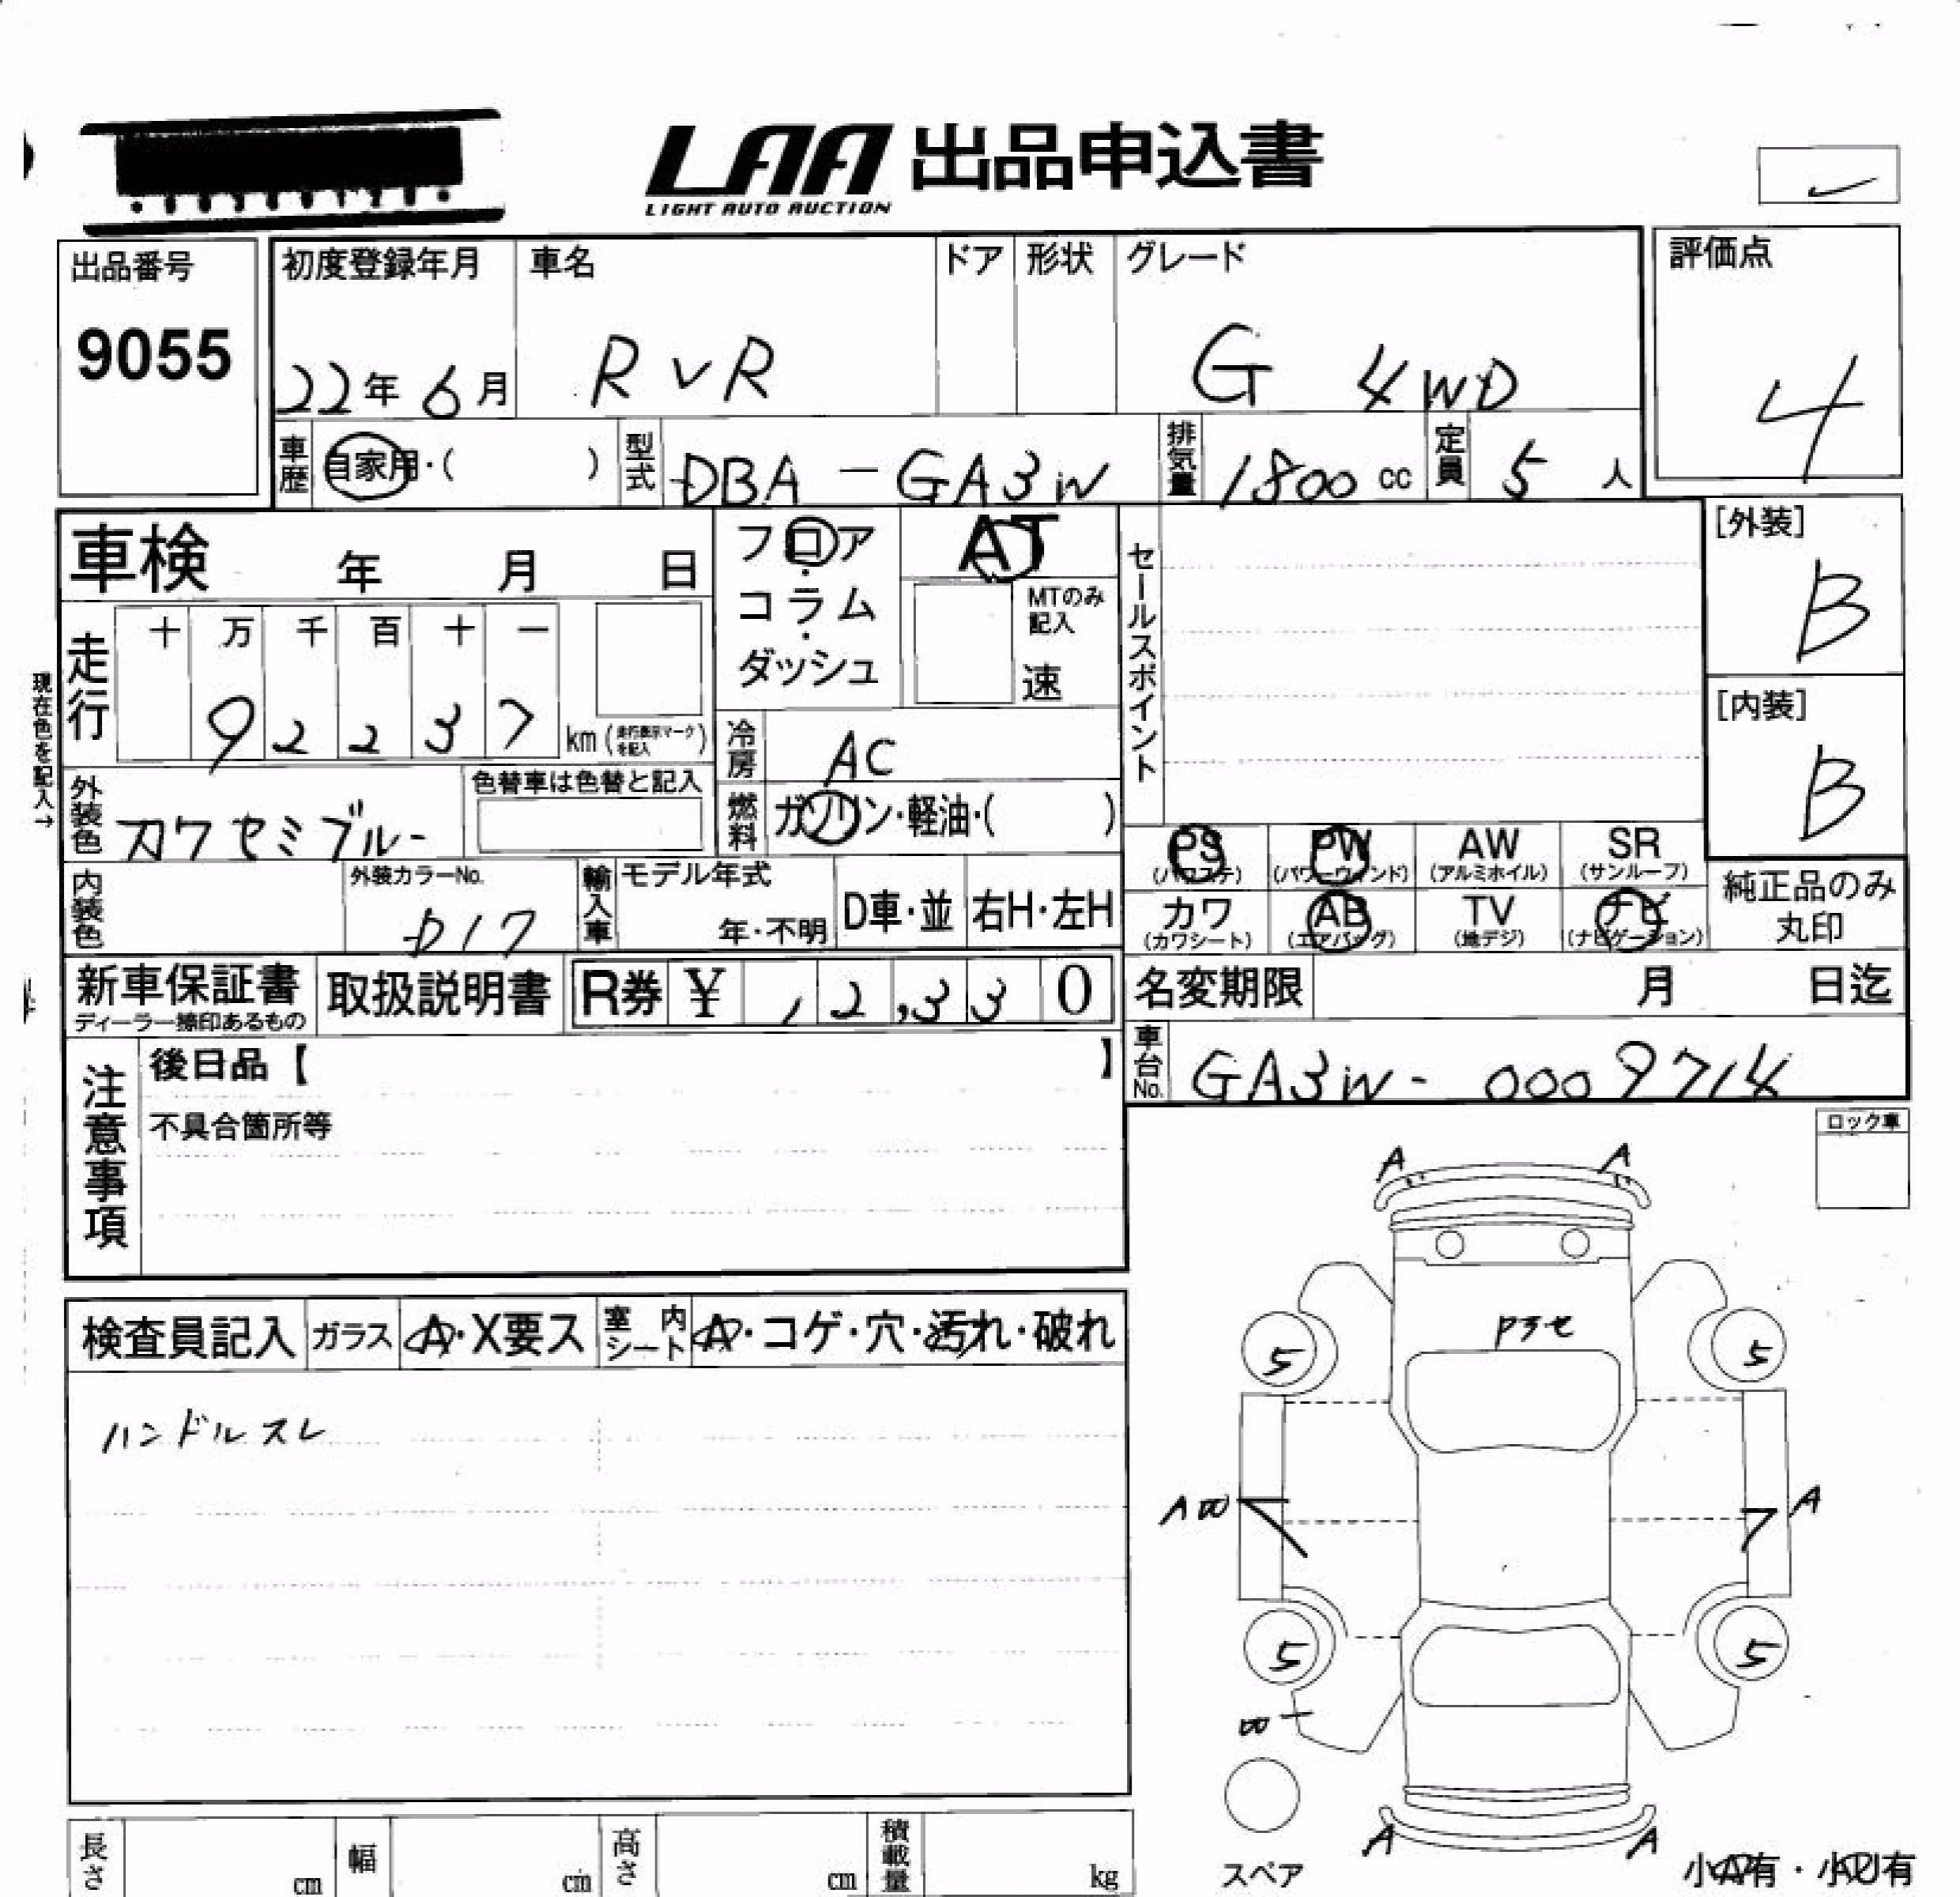 LAA 出品申込書
LIGHT AUTO AUCTION
出品番号
9055
初度登録年月
22年6月
車名
RVR
ドア
形状
グレード
G 4WD
評価点
4
車歴
自家用・( )
型式
DBA-GA3W
排気量
1800 cc
定員
5 人
車検 年 月 日
フロア・コラム・ダッシュ
AT
MTのみ記入
速
セールスポイント
[外装]
B
[内装]
B
現在色を記入→
走行
十 万 千 百 十 一
9 2 2 3 7
km (走行表示マークを記入)
冷房
AC
外装色
カワセミブルー
色替車は色替と記入
燃料
ガソリン・軽油・( )
PS
(パワステ)
PW
(パワーウィンド)
AW
(アルミホイル)
SR
(サンルーフ)
カワ
(カワシート)
AB
(エアバッグ)
TV
(地デジ)
ナビ
(ナビゲーション)
純正品のみ
丸印
内装色
外装カラーNo.
D17
輸入車
モデル年式
年・不明
D車・並
右H・左H
新車保証書
ディーラー捺印あるもの
取扱説明書
R券 ¥ 12,330
名変期限 月 日迄
車台No.
GA3W-0009714
注意事項
後日品【 】
不具合箇所等
ロック車
A A
Pヲセ
5 5
A A
5 5
A A
検査員記入
ガラス
A・X要ス
室内シート
A・コゲ・穴・汚れ・破れ
ハンドルスレ
スペア
小A有・小U有
長さ cm
幅 cm
高さ cm
積載量 kg